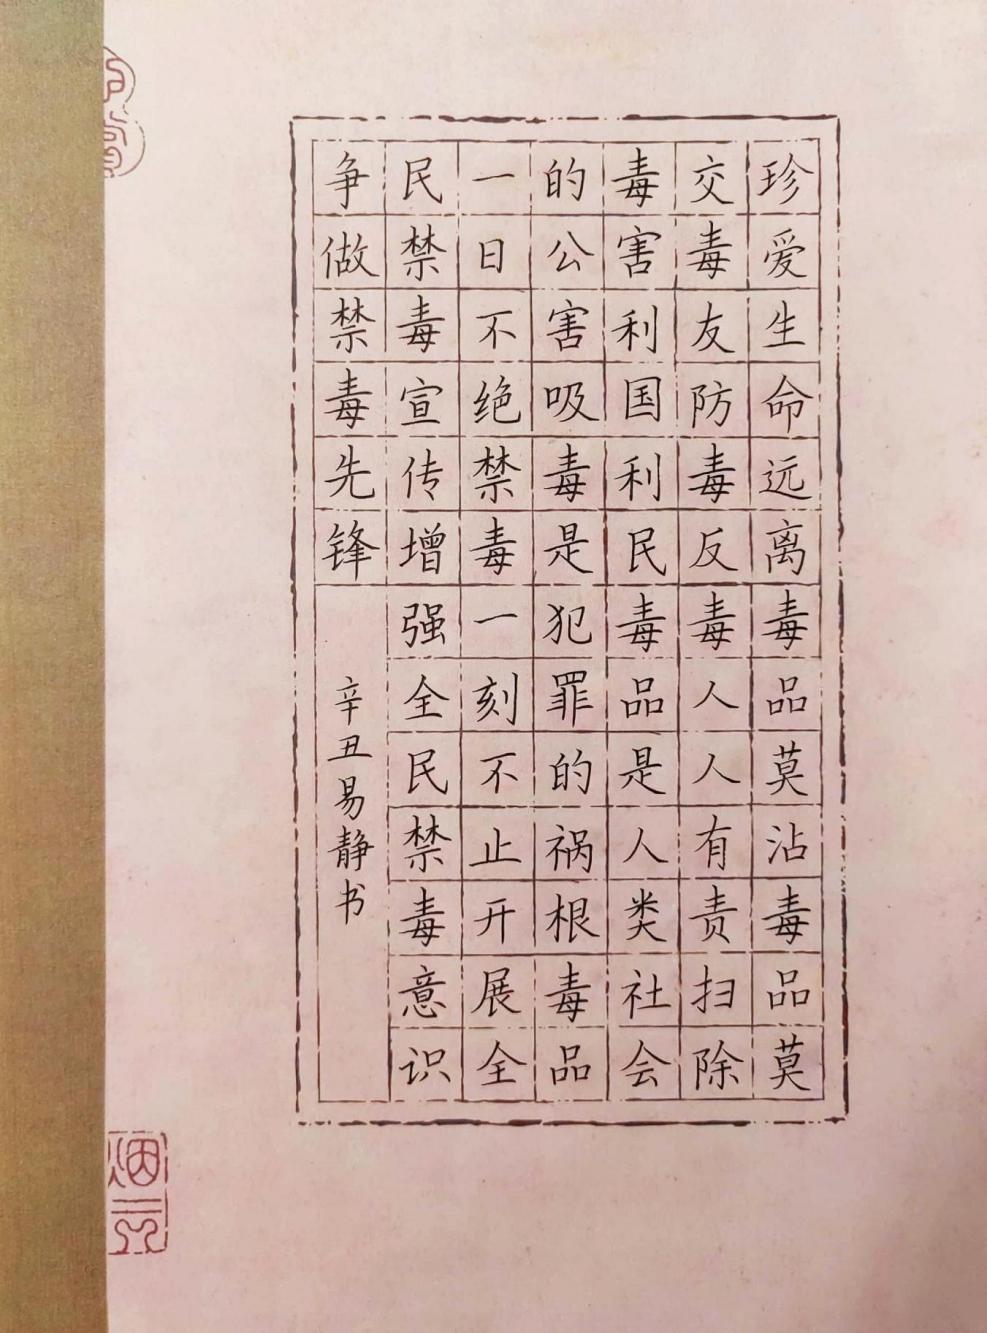 珍爱生命远离毒品莫沾毒品莫
交毒友防毒反毒人人有责扫除
毒害利国利民毒品是人类社会
的公害吸毒是犯罪的祸根毒品
一日不绝禁毒一刻不止开展全
民禁毒宣传增强全民禁毒意识
争做禁毒先锋
辛丑易静书